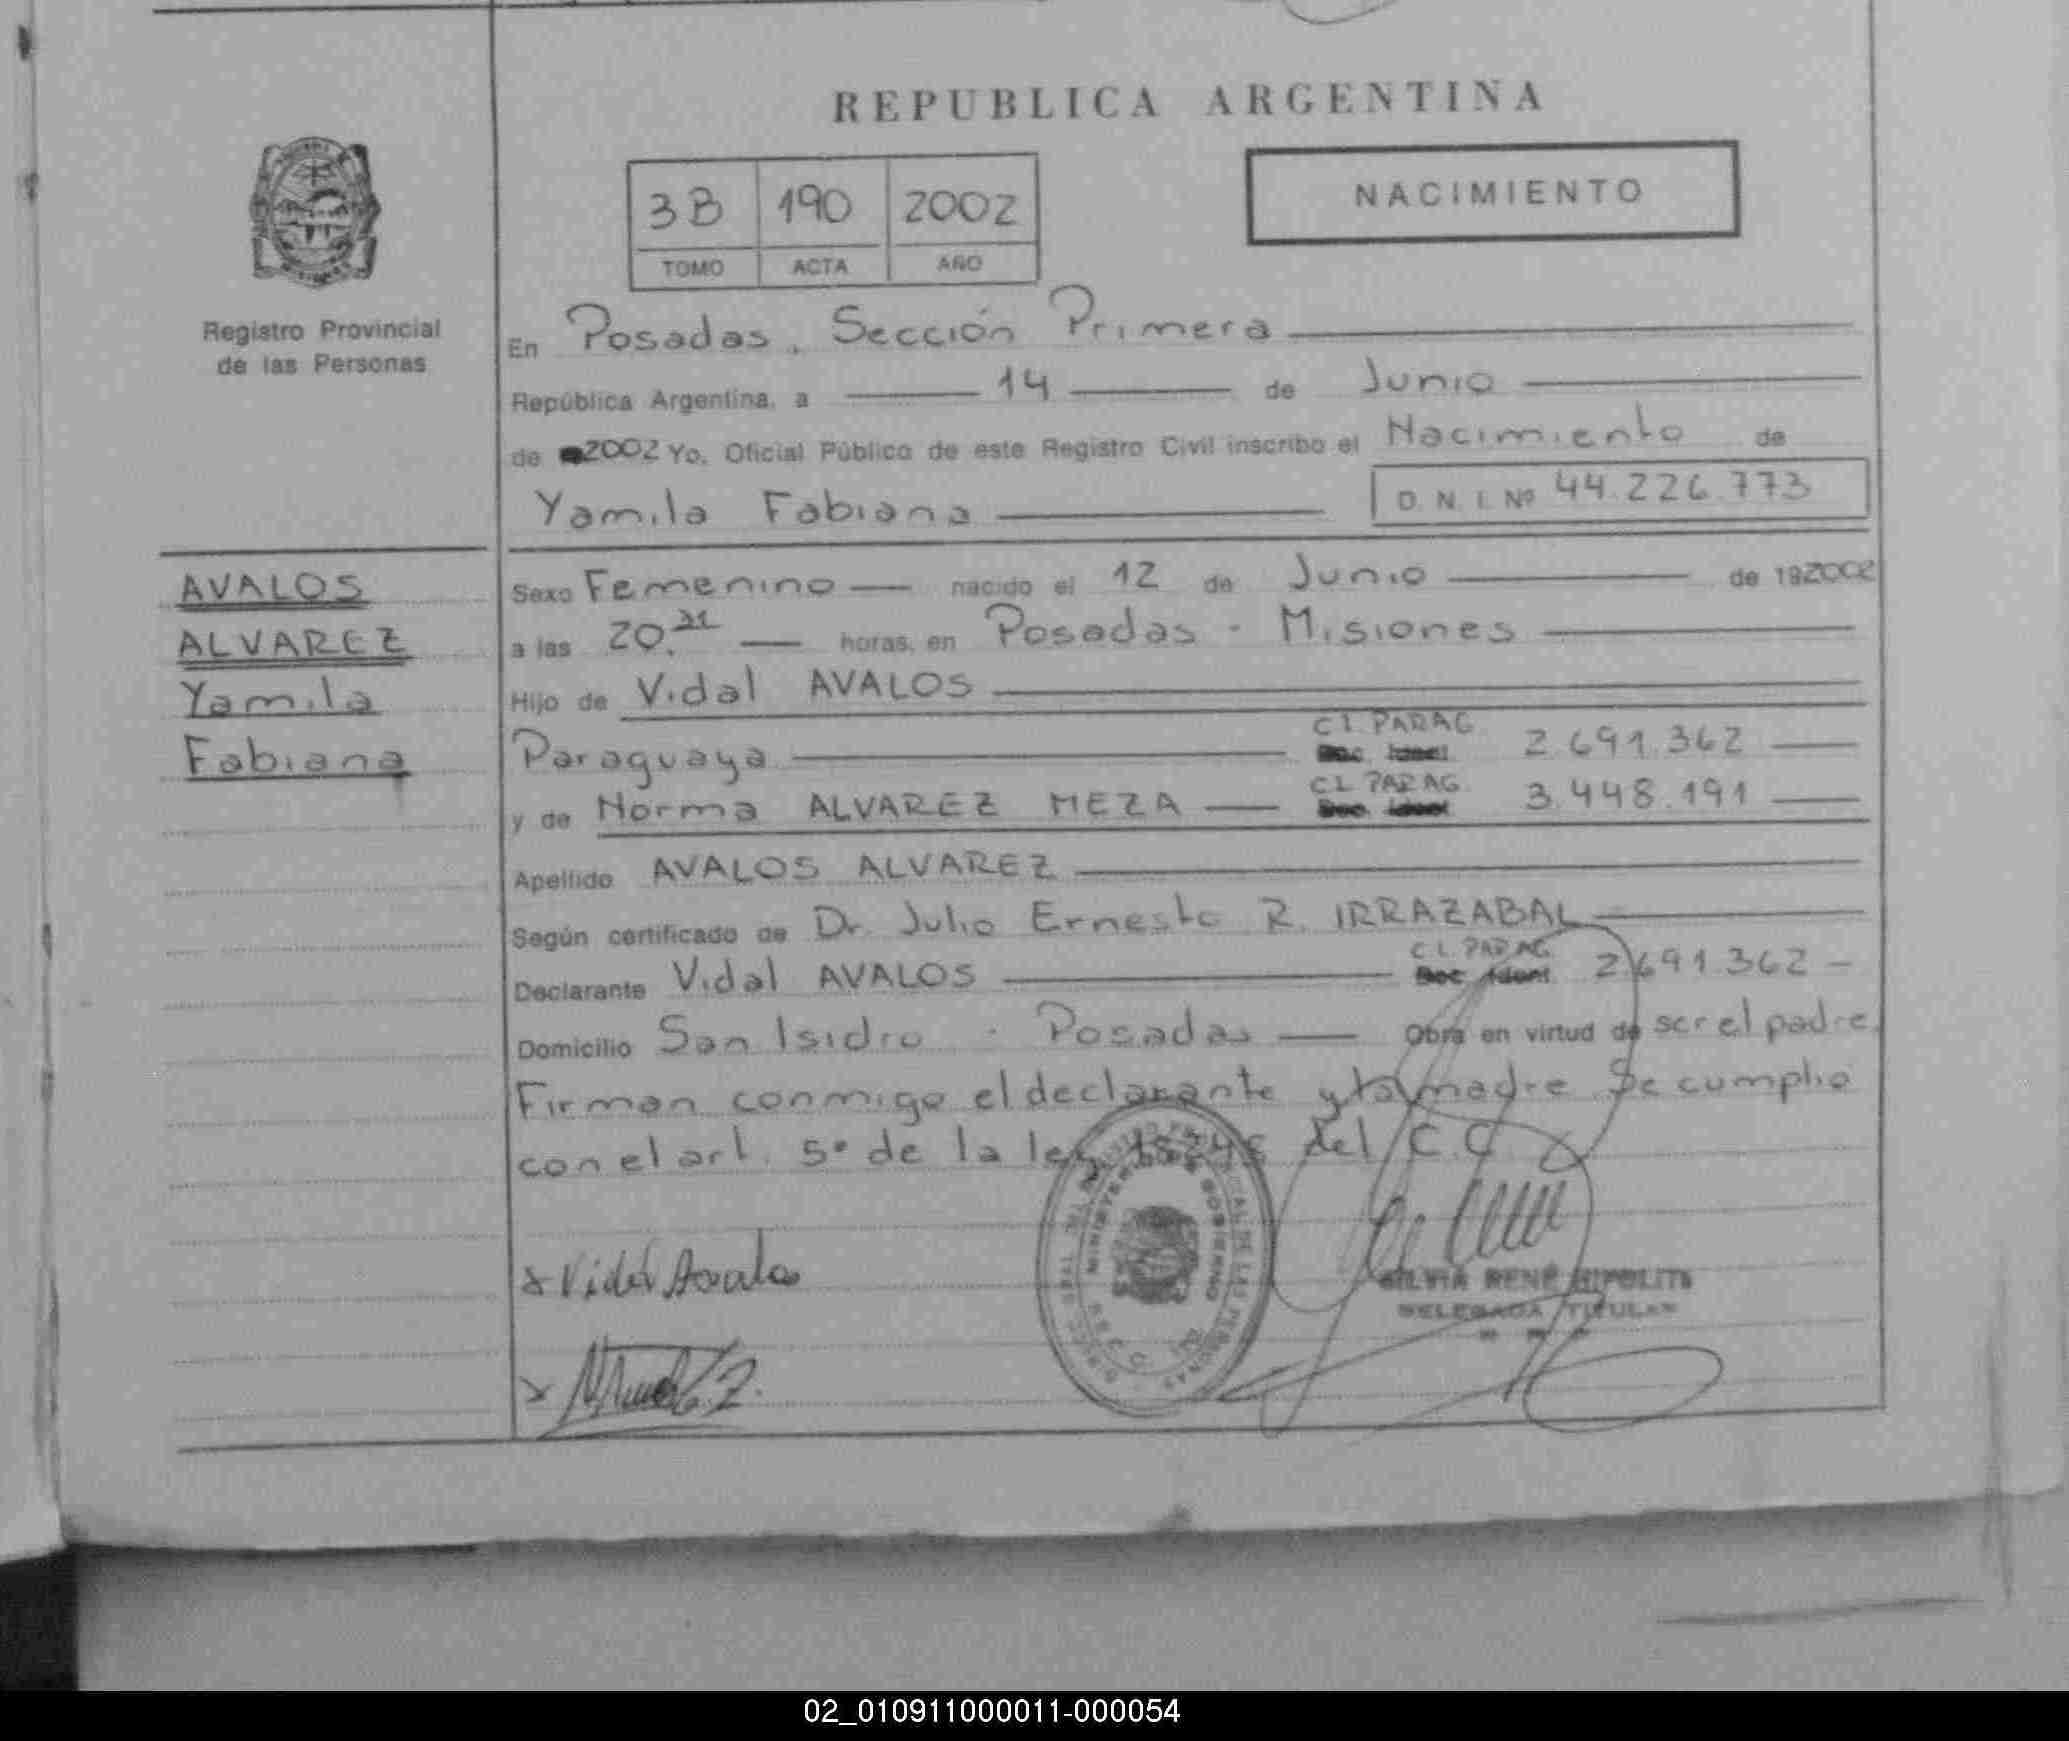 REPUBLICA ARGENTINA
NACIMIENTO
3B 190 2002
TOMO ACTA AÑO
Registro Provincial
de las Personas
En Posadas, Sección Primera
República Argentina, a 14 de Junio
de 2002 Yo, Oficial Público de este Registro Civil inscribo el Nacimiento de
Yamila Fabiana D. N. I. Nº 44.226.773
AVALOS
ALVAREZ
Yamila
Fabiana
Sexo Femenino nacido el 12 de Junio de 192002
a las 20.21 horas, en Posadas - Misiones
Hijo de Vidal AVALOS
Paraguaya C.I. PARAG. Doc. Ident. 2.691.362
y de Norma ALVAREZ MEZA C.I. PARAG. Doc. Ident. 3.448.191
Apellido AVALOS ALVAREZ
Según certificado de Dr. Julio Ernesto R. IRRAZABAL
Declarante Vidal AVALOS C.I. PARAG. Doc. Ident. 2.691.362 -
Domicilio San Isidro - Posadas Obra en virtud de ser el padre.
Firman conmigo el declarante y la madre Se cumplio
con el art. 5º de la ley del C.C.
MINISTERIO DE GOBIERNO
SILVIA RENÉ HIPOLITI
DELEGADA TITULAR
02_010911000011-000054